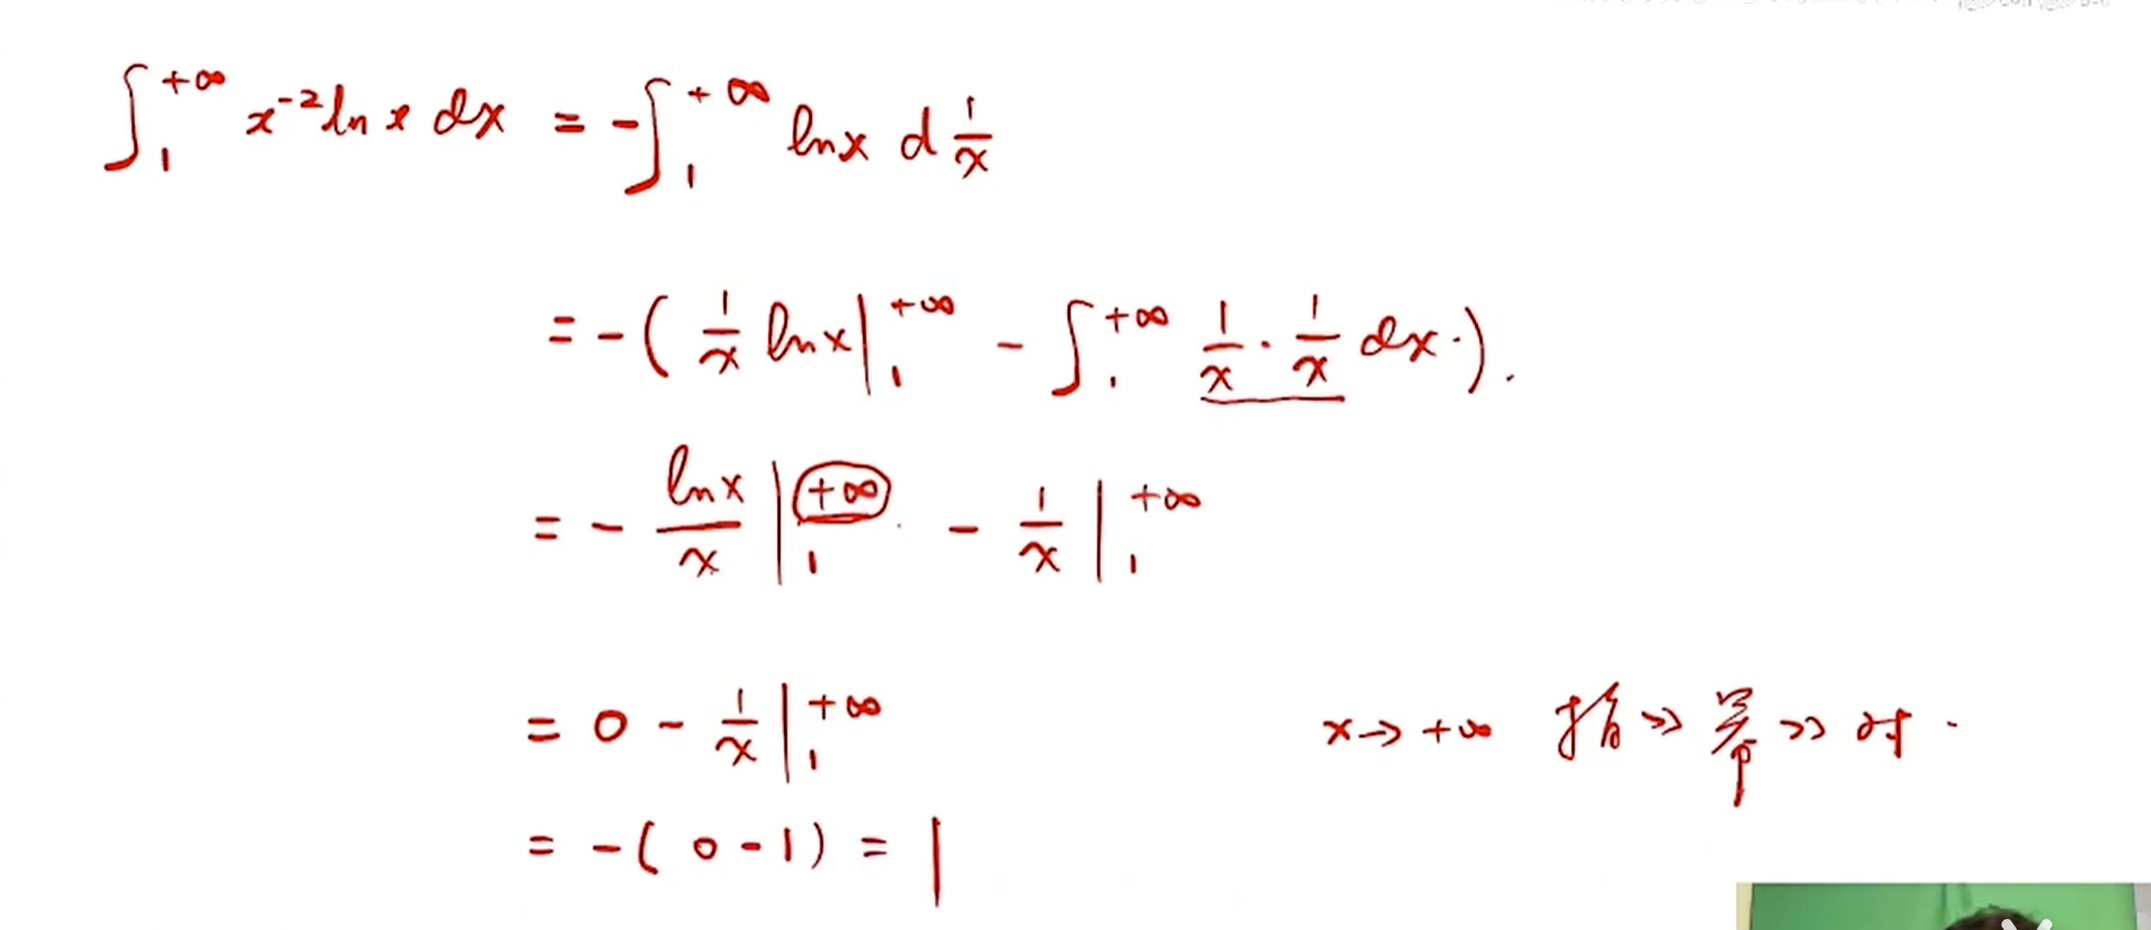 ∫₁^{+∞} x⁻² ln x dx = -∫₁^{+∞} ln x d 1/x
= -( 1/x ln x |₁^{+∞} - ∫₁^{+∞} 1/x · 1/x dx · ) .
= - ln x / x |₁^{+∞} - 1/x |₁^{+∞}
= 0 - 1/x |₁^{+∞}
x → +∞ 指 >> 幂 >> 对 ·
= -( 0 - 1 ) = 1